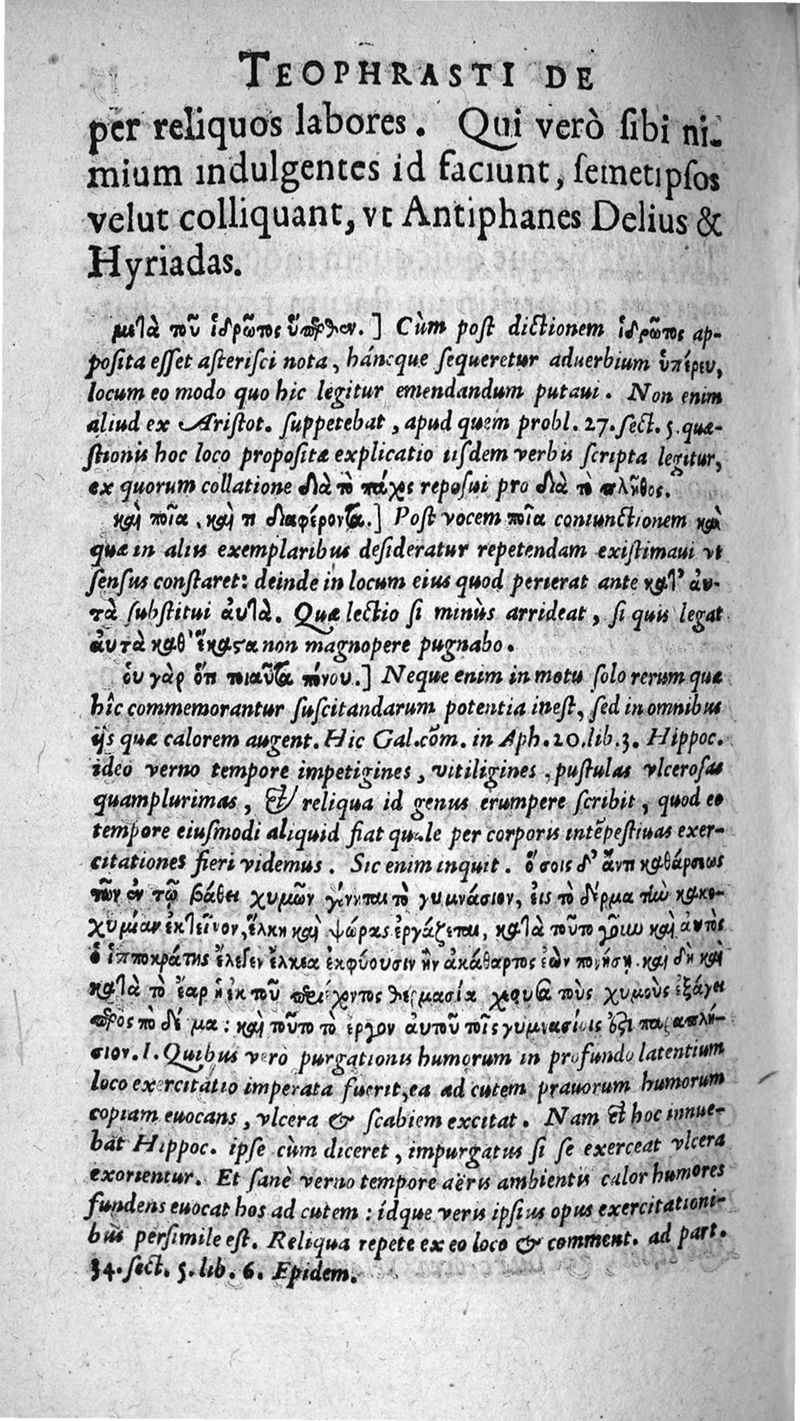 TEOPHRASTI DE
per reliquos labores. Qui verò sibi ni-
mium indulgentes id faciunt, semetipsos
velut colliquant, vt Antiphanes Delius &
Hyriadas.
μετὰ τοῦ ἱδρῶτος ὕπερθεν.] Cùm post dictionem ἱδρῶτος ap-
posita esset asterisci nota, háncque sequeretur aduerbium ὑπέρευ,
locum eo modo quo hic legitur emendandum putaui. Non enim
aliud ex Aristot. suppetebat, apud quem probl. 27. sect. 5. quæ-
stionis hoc loco propositæ explicatio iisdem verbis scripta legitur,
ex quorum collatione διὰ τὸ πάχος reposui pro διὰ τὸ πλῆθος.
καὶ ποῖα, καὶ τί διαφέροντα.] Post vocem ποῖα coniunctionem καὶ
quæ in aliis exemplaribus desideratur repetendam existimaui vt
sensus constaret: deinde in locum eius quod perierat ante κατ' αὐ-
τὰ substitui αὐτὰ. Quæ lectio si minùs arrideat, si quis legat
αὐτὰ καθ' ἕκαστα non magnopere pugnabo.
οὐ γὰρ ὅτι τοιαῦτα πόνου.] Neque enim in motu solo rerum quæ
hîc commemorantur suscitandarum potentia inest, sed in omnibus
ijs quæ calorem augent. Hic Gal. cõm. in Aph. 20. lib. 3. Hippoc.
ideo verno tempore impetigines, vitiligines, pustulas vlcerosas
quamplurimas, & reliqua id genus erumpere scribit, quod eo
tempore eiusmodi aliquid fiat quale per corporis intẽpestiuas exer-
citationes fieri videmus. Sic enim inquit. ὅσοις δ' ἀντὶ καθάρσεως
τῶν ἐν τῷ βάθει χυμῶν γίνεται τὸ γυμνάσιον, εἰς τὸ δέρμα τὴν κακο-
χυμίαν ἐκτεῖνον, ἕλκη καὶ ψώρας ἐργάζεται, κατὰ τοῦτο γοῦν καὶ αὐτὸς
ὁ ἱπποκράτης ἔλεξεν ἕλκεα ἐκφύουσιν ἢν ἀκάθαρτος ἐὼν πονήσῃ. καὶ δὴ καὶ
κατὰ τὸ ἔαρ ἡ ἐκ τοῦ περιέχοντος θερμασία χέουσα τοὺς χυμοὺς ἐξάγει
πρὸς τὸ δέρμα: καὶ τοῦτο τὸ ἔργον αὐτοῦ τοῖς γυμνασίοις ἐστὶ παραπλή-
σιον. I. Quibus verò purgationis humorum in profundo latentium
loco exercitatio imperata fuerit, ea ad cutem prauorum humorum
copiam euocans, vlcera & scabiem excitat. Nam & hoc innue-
bat Hippoc. ipse cùm diceret, impurgatus si se exerceat vlcera
exorientur. Et sanè verno tempore aëris ambientis calor humores
fundens euocat hos ad cutem: idque veris ipsius opus exercitationi-
bus persimile est. Reliqua repete ex eo loco & comment. ad part.
34. sect. 5. lib. 6. Epidem.